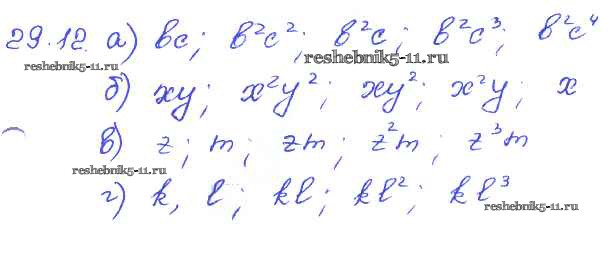 29.12. а) bc; b²c²; b²c; b²c³; b²c⁴
reshebnik5-11.ru
reshebnik5-11.ru
б) xy; x²y²; xy²; x²y; x
в) z; m; zm; z²m; z³m
reshebnik5-11.ru
г) k, l; kl; kl²; kl³
reshebnik5-11.ru